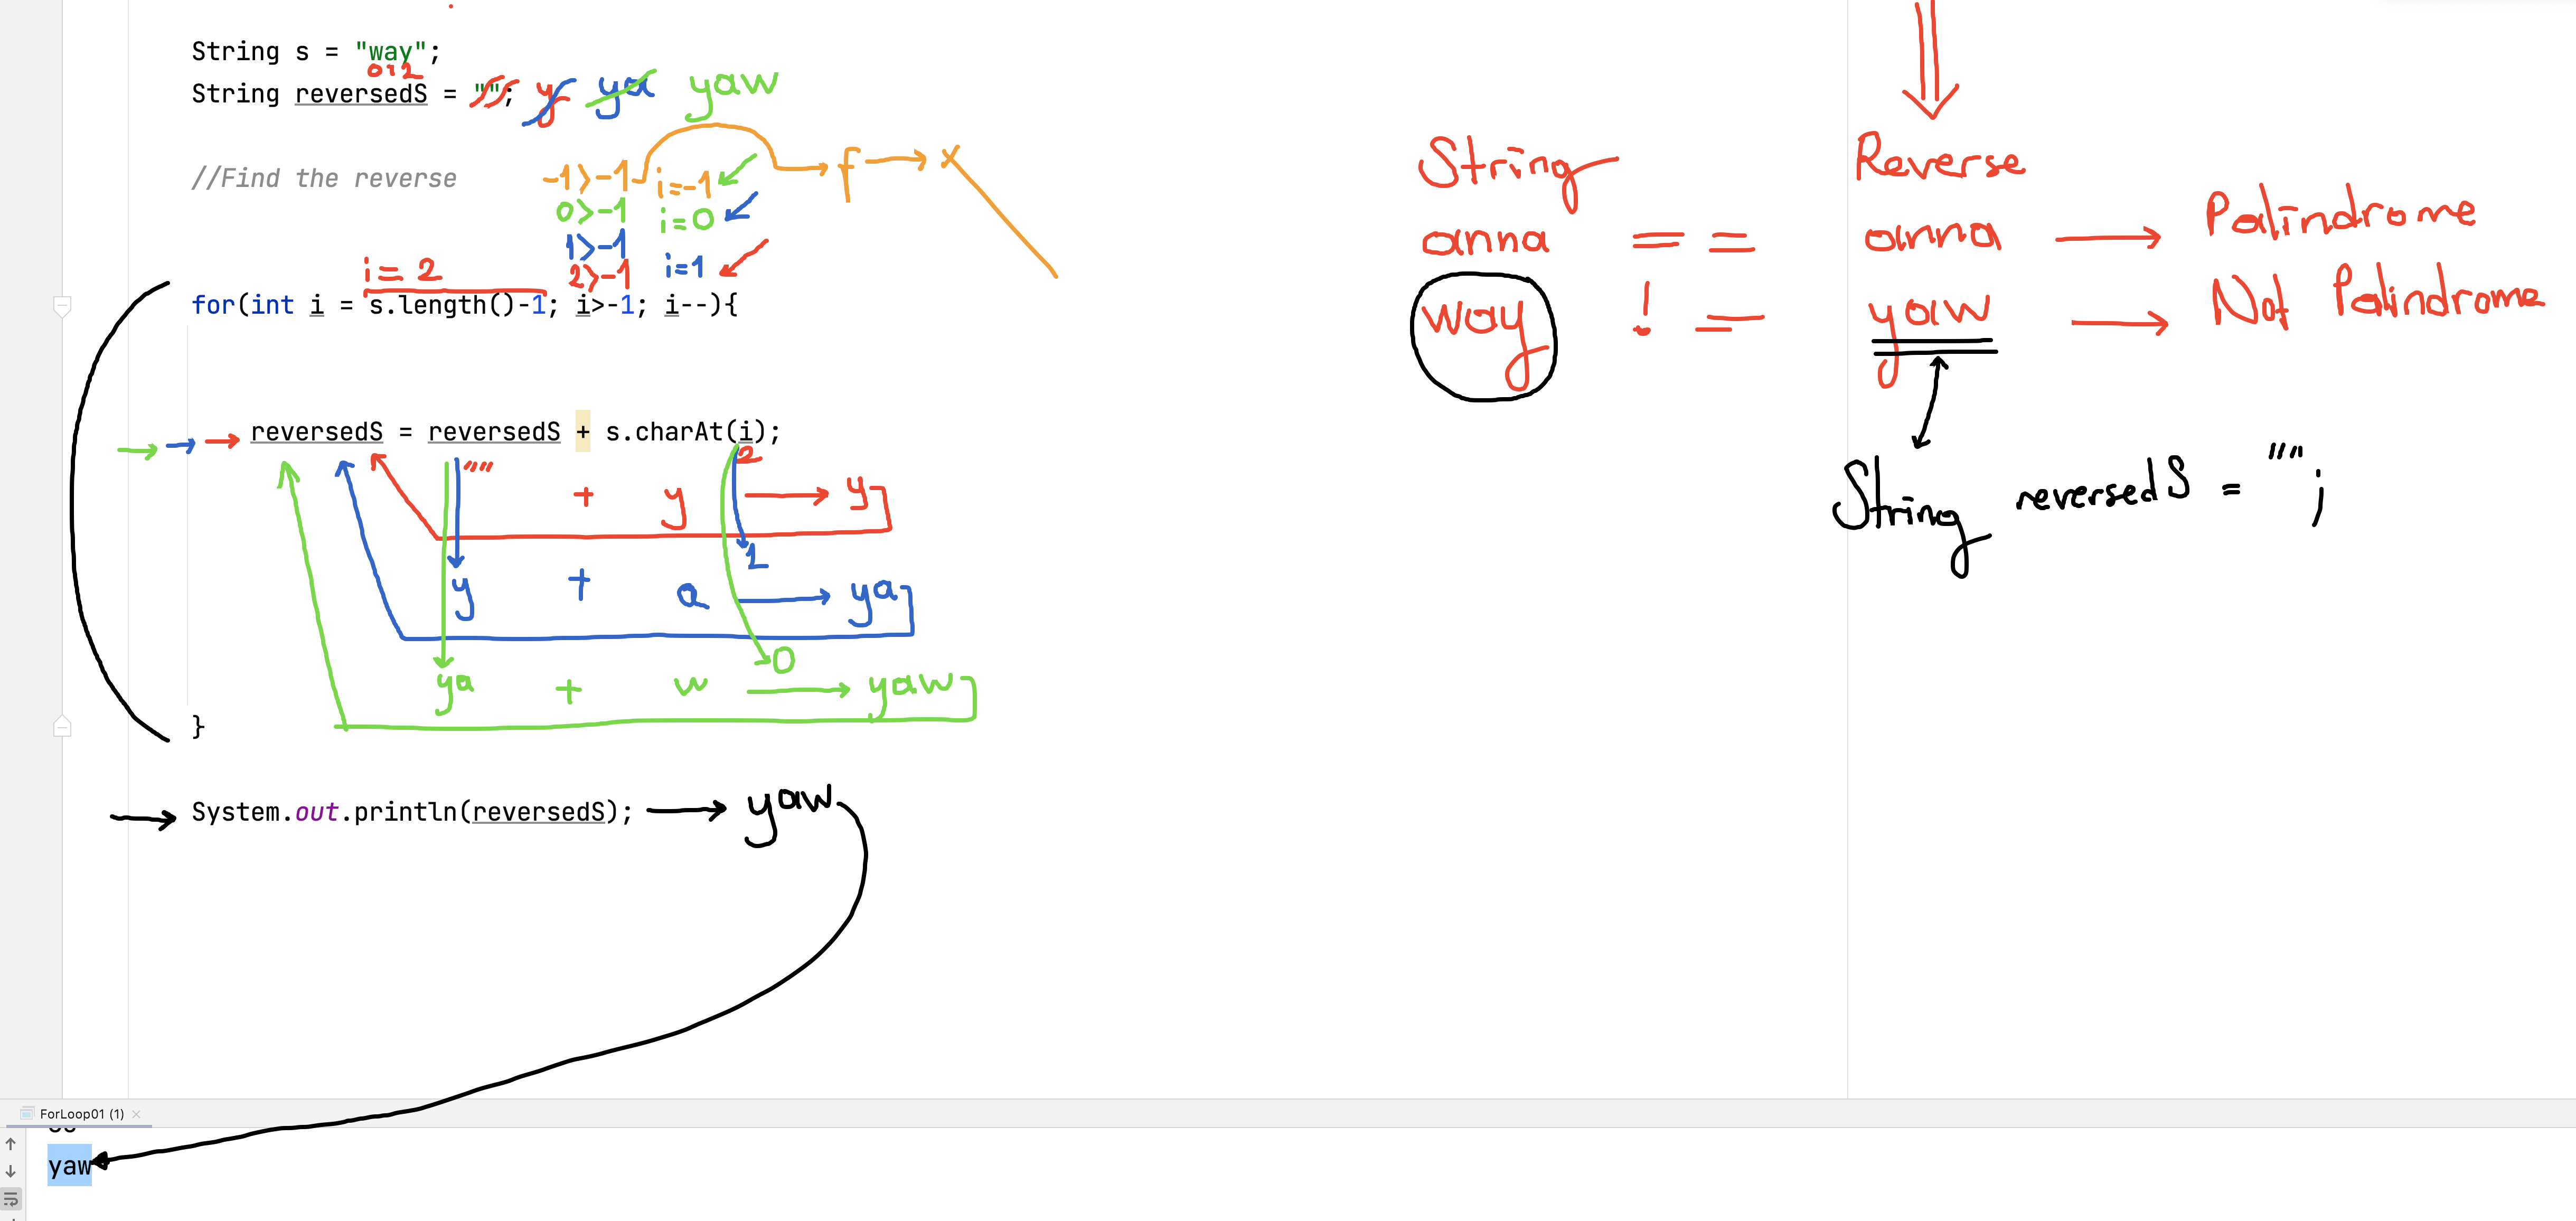 String s = "way";
012
String reversedS = ""; y ya yaw
//Find the reverse
-1>-1 i=-1 f x
0>-1 i=0
1>-1
i=2 2>-1 i=1
for(int i = s.length()-1; i>-1; i--){
reversedS = reversedS + s.charAt(i);
"" 2
+ y y
1
y + a ya
0
ya + w yaw
}
System.out.println(reversedS); yaw
String Reverse
anna == anna Palindrome
way != yaw Not Palindrome
String reversedS = "";
ForLoop01 (1)
yaw